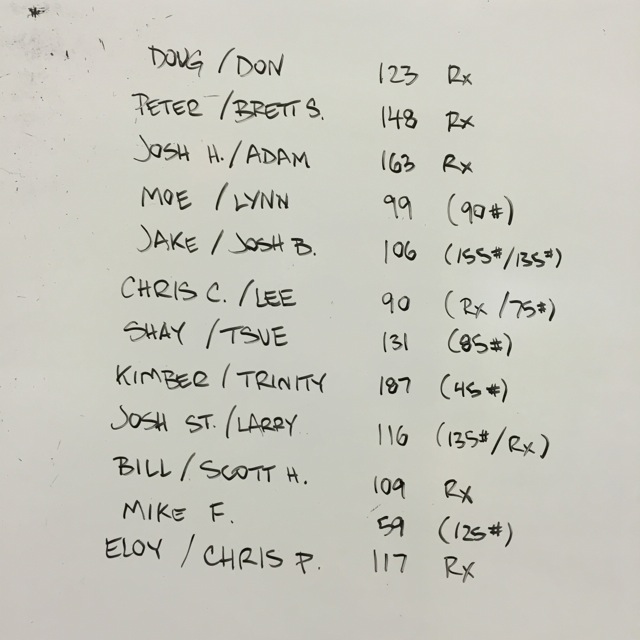 DOUG / DON 123 Rx
PETER / BRETT S. 148 Rx
JOSH H. / ADAM 163 Rx
MOE / LYNN 99 (90#)
JAKE / JOSH B. 106 (155#/135#)
CHRIS C. / LEE 90 (Rx / 75#)
SHAY / TSUE 131 (85#)
KIMBER / TRINITY 187 (45#)
JOSH ST. / LARRY 116 (135#/Rx)
BILL / SCOTT H. 109 Rx
MIKE F. 59 (125#)
ELOY / CHRIS P. 117 Rx